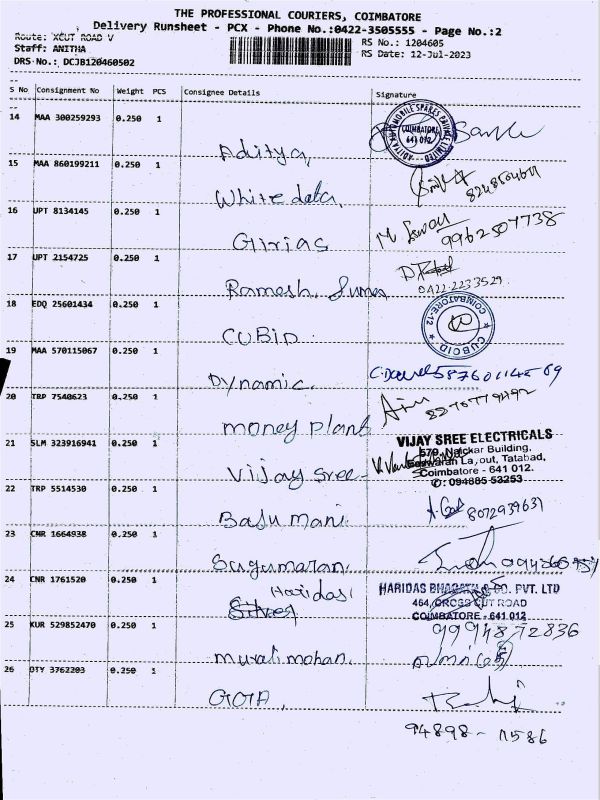 THE PROFESSIONAL COURIERS, COIMBATORE
Delivery Runsheet - PCX - Phone No.:0422-3505555 - Page No.:2
Route: XCUT ROAD V
Staff: ANITHA
DRS No.: DCJB120460502
RS No.: 1204605
RS Date: 12-Jul-2023
S No Consignment No Weight PCS Consignee Details Signature
14 MAA 300259293 0.250 1
Aditya,
COIMBATORE
641 012
15 MAA 860199211 0.250 1
White data,
16 UPT 8134145 0.250 1
Girias
9962507738
17 UPT 2154725 0.250 1
Ramesh.
0422-2233529
18 EDQ 25601434 0.250 1
CUBID
COIMBATORE-12
CUBCID
19 MAA 570115067 0.250 1
Dynamic.
20 TRP 7540623 0.250 1
money plant
21 SLM 323916941 0.250 1
Vijay sree
VIJAY SREE ELECTRICALS
579, Naickar Building,
Tatabad,
Coimbatore - 641 012.
✆: 094885 53253
22 TRP 5514530 0.250 1
Basu mani
8072939631
23 CNR 1664938 0.250 1
Sugumaran.
24 CNR 1761520 0.250 1
Haridas
HARIDAS BHAGATH & CO. PVT. LTD
464, CROSS CUT ROAD
COIMBATORE - 641 012
25 KUR 529852470 0.250 1
99948 72836
murali mohan.
26 OTY 3762203 0.250 1
GOTA,
94898 - 11586